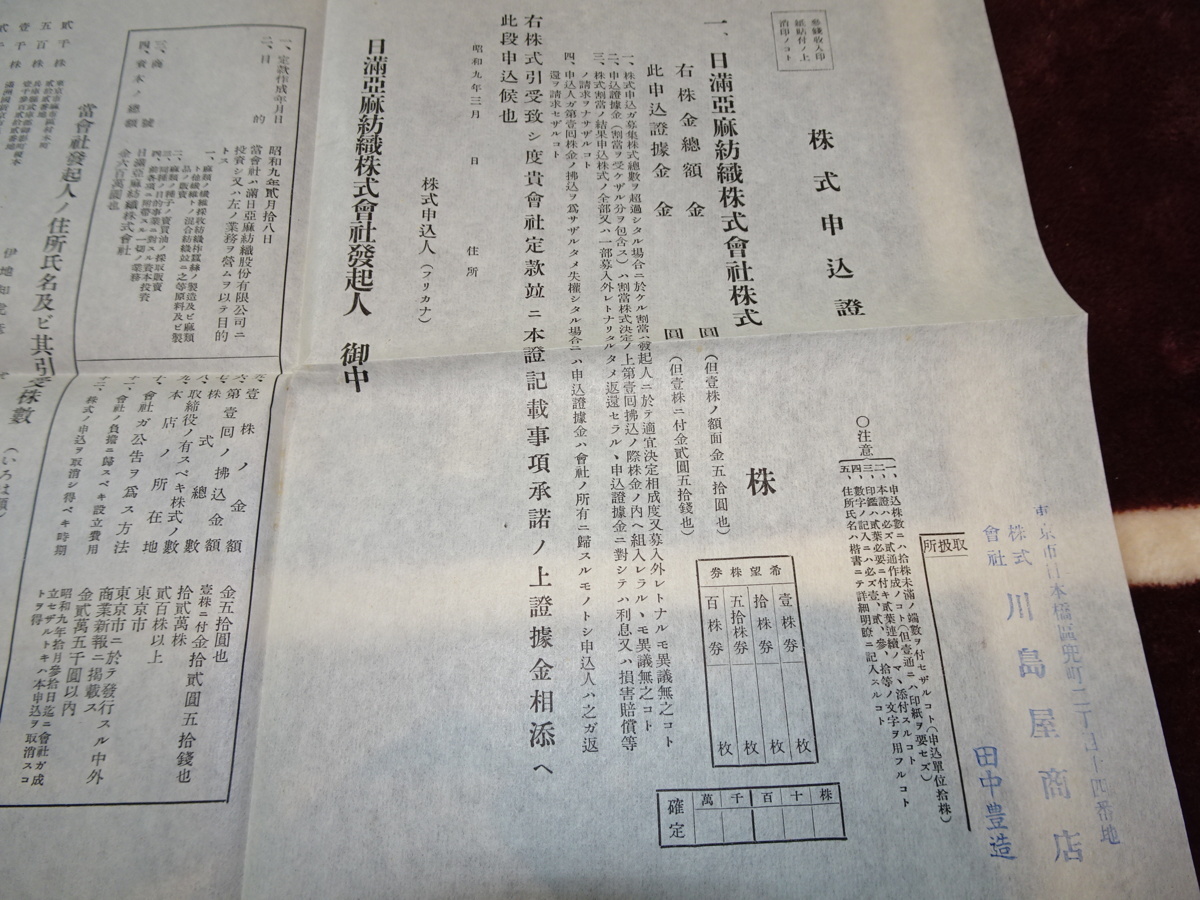 東京市日本橋區兜町二丁目十四番地
株式會社 川島屋商店
田中豊造
取扱所
○注意
一、申込株數ニハ拾株未滿ノ端數ヲ付セザルコト(申込單位拾株)
二、本證ハ必ズ貳通作成ノコト(但壹通ニハ印紙ヲ要セズ)
三、印鑑ハ貳葉必要ニ付キ貳葉連續ノマヽ添付スルコト
四、數字ノ記入ニハ必ズ壹、貳、參、拾等ノ文字ヲ用フルコト
五、住所氏名ハ楷書ニテ詳細明瞭ニ記入スルコト
參錢收入印
紙貼付ノ上
消印ノコト
株式申込證
一、日滿亞麻紡織株式會社株式 株
右株金總額 金 圓 (但壹株ノ額面金五拾圓也)
此申込證據金 金 圓 (但壹株ニ付金貳圓五拾錢也)
希望株券
壹株券 枚
拾株券 枚
五拾株券 枚
百株券 枚
確定
萬 千 百 十 株
一、株式申込ガ募集株式總數ヲ超過シタル場合ニ於ケル割當ハ發起人ニ於テ適宜決定相成度又募入外レトナルモ異議無之コト
二、申込證據金(割當ヲ受ケザル分ヲ包含ス)ハ割當株式決定ノ上第壹囘拂込ノ際株金ノ內ヘ組入レラルヽモ異議無之コト
三、株式割當ノ結果申込株式ノ全部又ハ一部募入外レトナリタルタメ返還セラルヽ申込證據金ニ對シテハ利息又ハ損害賠償等
ノ請求ヲナサザルコト
四、申込人ガ第壹囘株金ノ拂込ヲ爲サザルタメ失權シタル場合ニハ申込證據金ハ會社ノ所有ニ歸スルモノトシ申込人ハ之ガ返
還ヲ請求セザルコト
右株式引受致シ度貴會社定款竝ニ本證記載事項承諾ノ上證據金相添ヘ
此段申込候也
昭和九年三月 日
住所
株式申込人(フリカナ)
日滿亞麻紡織株式會社發起人 御中
一、定款作成年月日 昭和九年貳月拾八日
二、目的 當會社ハ滿日亞麻紡織股份有限公司ニ
投資シ又ハ左ノ業務ヲ營ムヲ以テ目的
トス
一、麻類ノ纖維採收紡織作蠶絲ノ製造及ビ麻類
ト他纖維トノ混合紡織竝ニ之等原料及ビ製
品ノ販賣
二、麻類ノ種子ノ賣買油ノ採取販賣
三、同種ノ目的事業ニ對スル資本投資
四、前各項ニ附帶スル一切ノ業務
三、商號 日滿亞麻紡織株式會社
四、資本ノ總額 金六百萬圓也
五、壹株ノ金額 金五拾圓也
六、第壹囘ノ拂込金額 壹株ニ付金拾貳圓五拾錢也
七、株式總數 拾貳萬株
八、取締役ノ有スベキ株式ノ數 貳百株以上
九、本店ノ所在地 東京市
十、會社ガ公告ヲ爲ス方法 東京市ニ於テ發行スル中外
商業新報ニ揭載ス
十一、會社ノ負擔ニ歸スベキ設立費用 金貳萬五千圓以內
十二、株式ノ申込ヲ取消シ得ベキ時期 昭和九年拾月參拾日迄ニ會社ガ成
立セザルトキハ本申込ヲ取消スコ
トヲ得
當會社發起人ノ住所氏名及ビ其引受株數 (いろは順)
貳千株
五百株
壹千株
貳千株